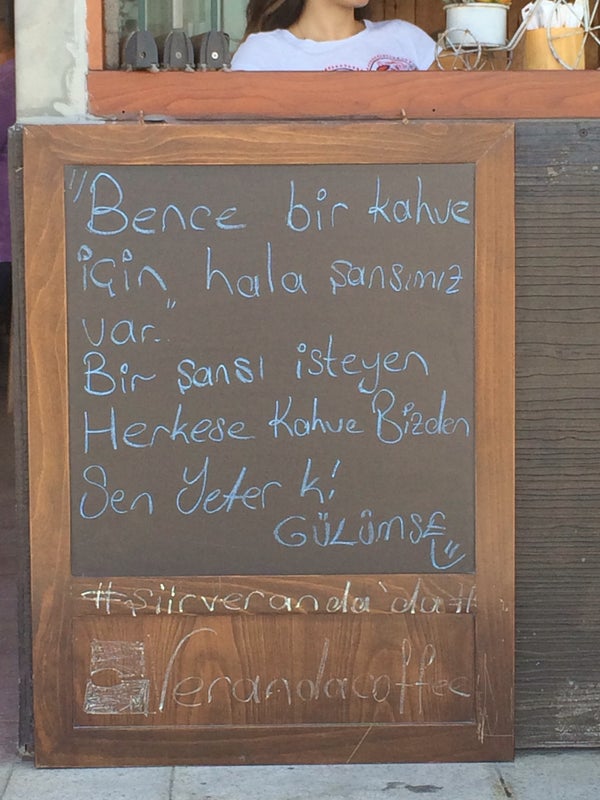 "Bence bir kahve
için hala şansımız
var.."
Bir şansı isteyen
Herkese Kahve Bizden
Sen Yeter ki
GÜLÜMSE
#şiirveranda'da#
Verandacoffee